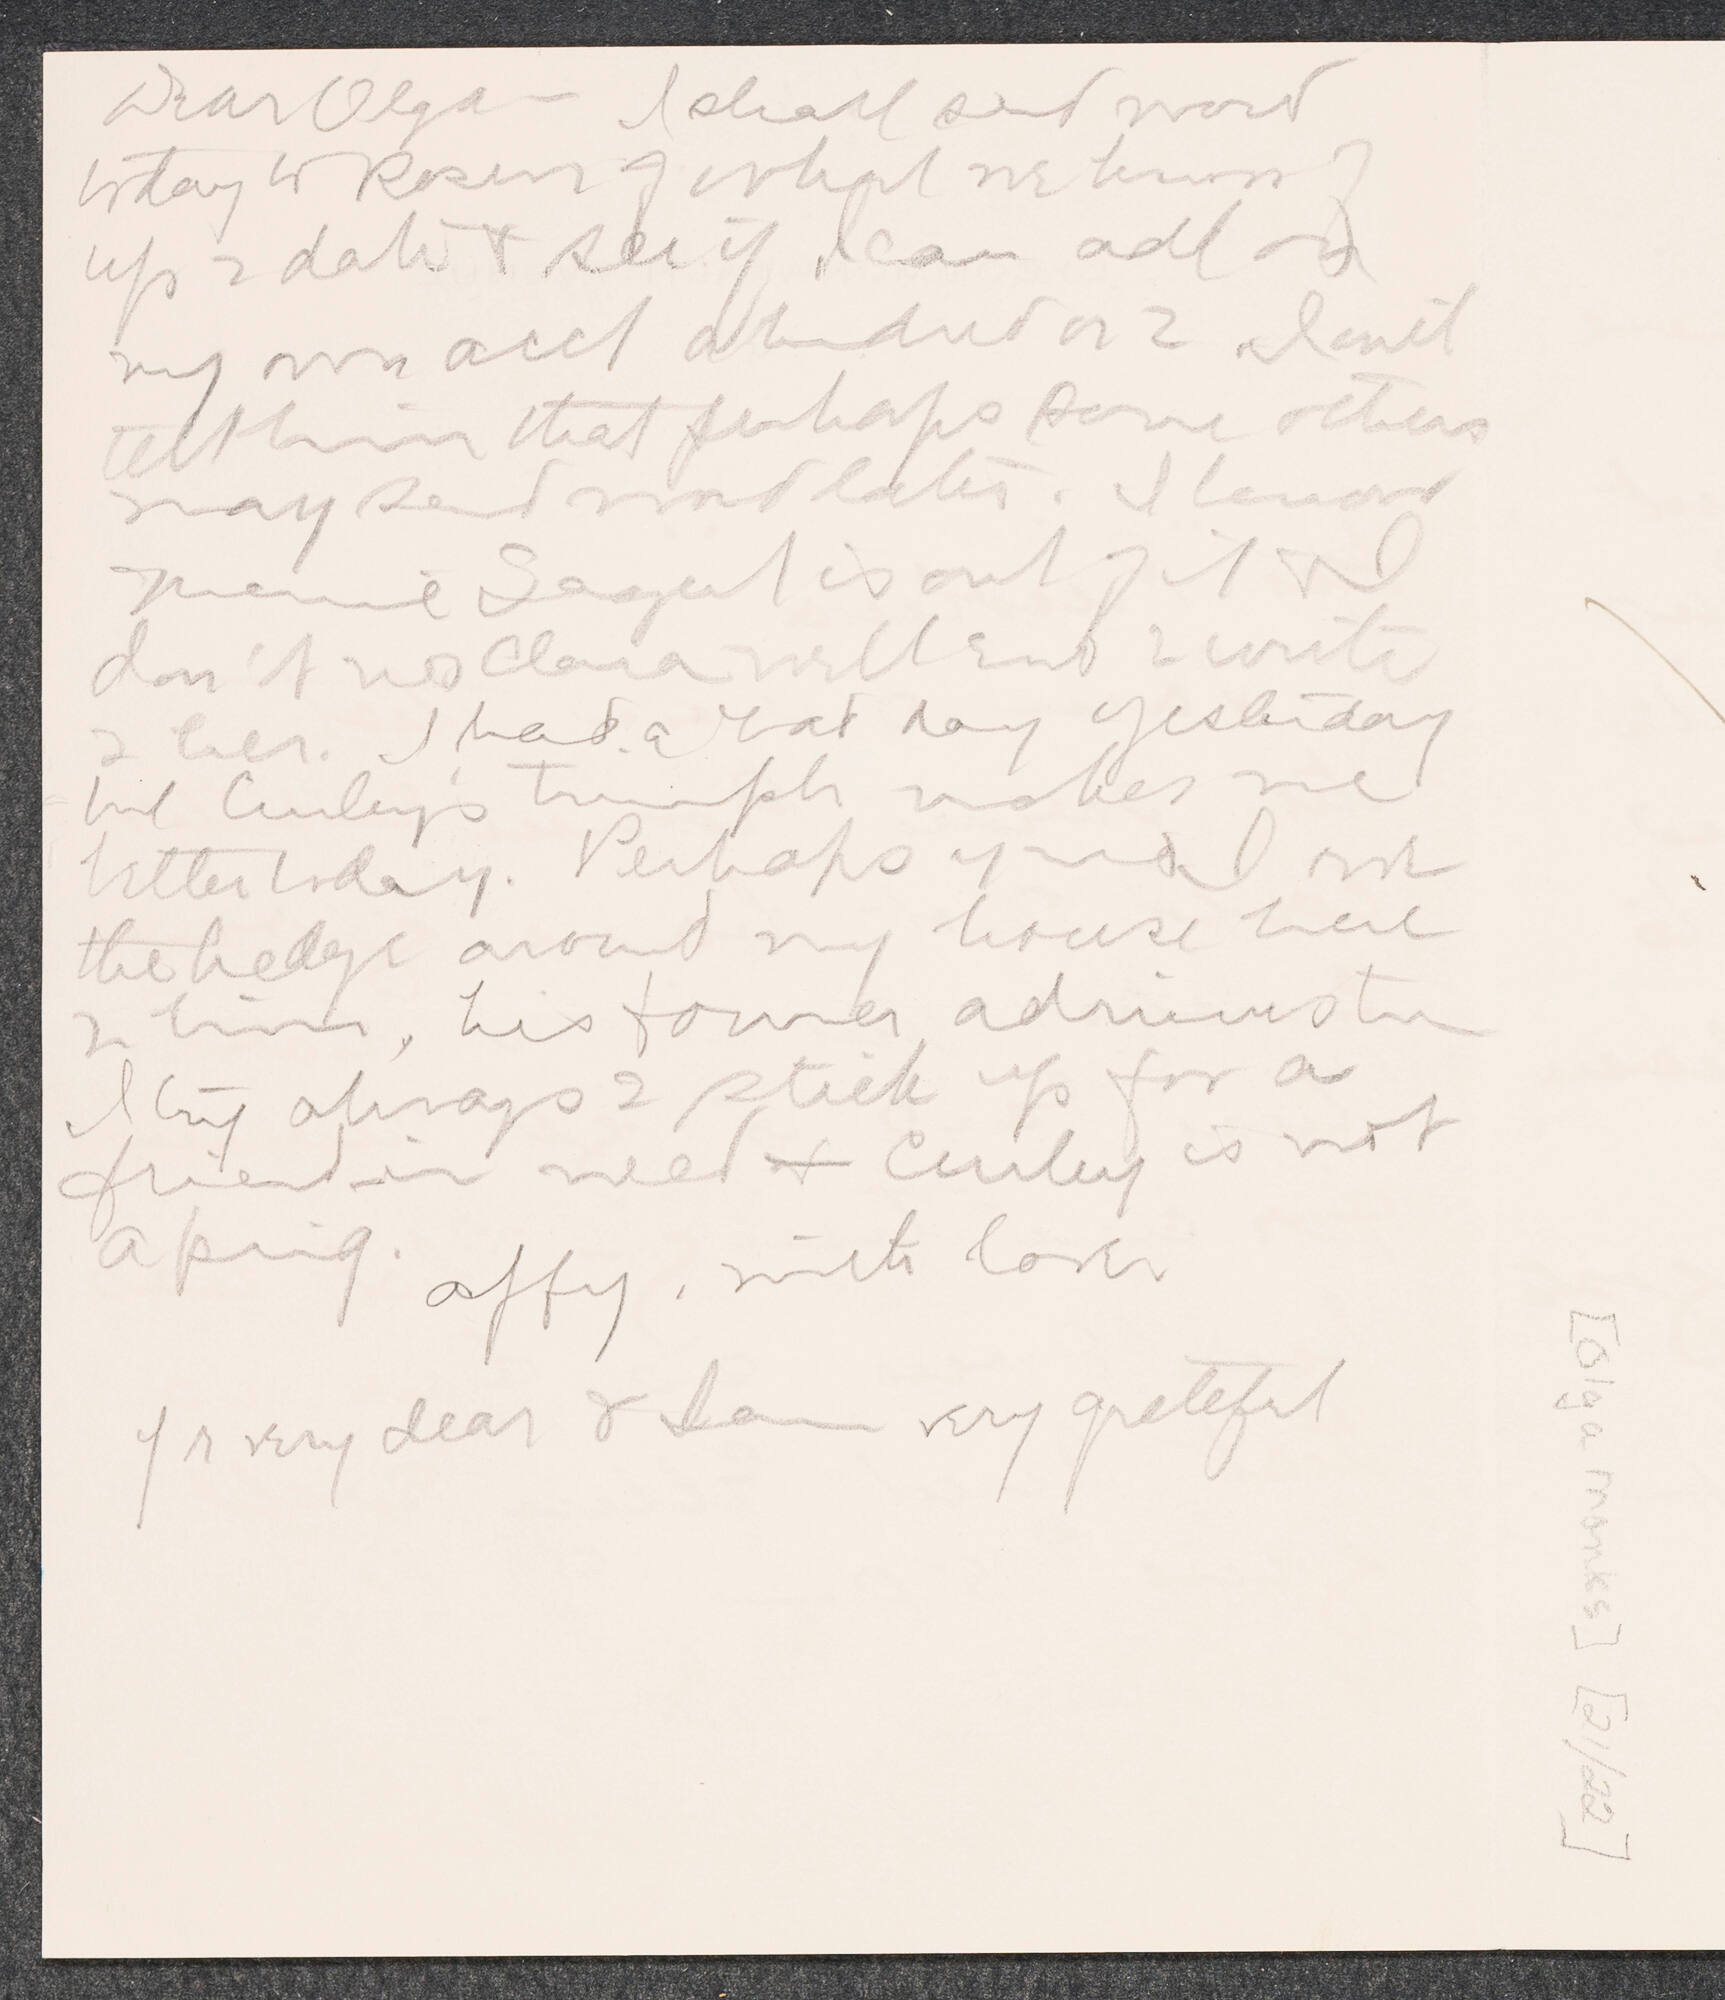 Dear Olga – I shall send word
today to Rosen of what we know
up 2 date & see if I can add on
my own acct a hundred or 2 I will
tell him that perhaps some others
may send word later. I know
Mamie Sargent is out of it & I
don't no Clara well enuf 2 write
2 her. I had a bad day yesterday
but Curley's triumph makes me
better today. Perhaps you & I owe
the hedge around my house here
2 him, his former administra
I try always 2 stick up for a
friend in need & Curley is not
a prig. affy, with love
yr very dear & I am very grateful
[Olga Monks] [21/22]